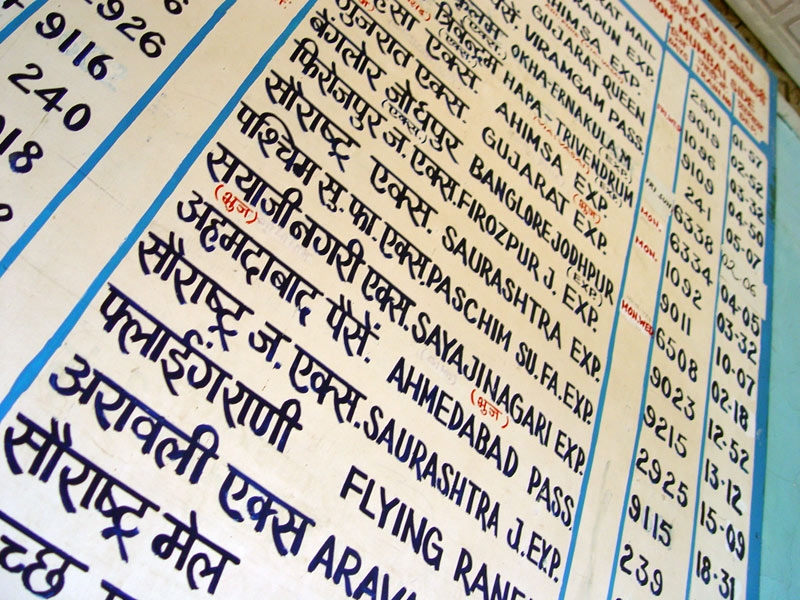 NAVSARI
FROM MUMBAI SIDE
MAIL 2901 01-57
EXP. 9019 02-52
AHIMSA EXP 1096 03-32
GUJARAT QUEEN 9109 04-50
VIRAMGAM PASS 241 05-07
OKHA-ERNAKULAM 6338 02-06
HAPA-TRIVENDRUM MON. 6334 04-05
एक्स AHIMSA EXP. (भुज) MON. 1092 03-32
गुजरात एक्स. GUJARAT EXP. 9011 10-07
बेंगलोर जोधपुर (एक्स.) BANGLORE JODHPUR (EXP.) MON.WED 6508 02-18
फिरोजपुर ज. एक्स. FIROZPUR J. EXP. 9023 12-52
सौराष्ट्र एक्स. SAURASHTRA EXP. 9215 13-12
पश्चिम सु. फा. एक्स. PASCHIM SU. FA. EXP. 2925 15-09
सयाजीनगरी एक्स. (भुज) SAYAJINAGARI EXP. (भुज) 9115 18-31
अहमदाबाद पैसें. AHMEDABAD PASS. 239
सौराष्ट्र ज. एक्स. SAURASHTRA J. EXP.
फ्लाईंगराणी FLYING RANE
अरावली एक्स ARAV
सौराष्ट्र मेल
च्छ
2926
9116
240